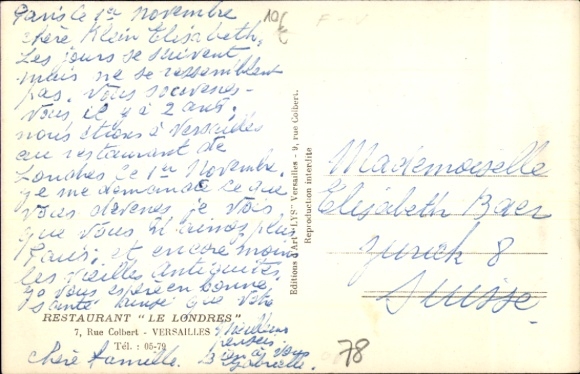 Paris le 1er Novembre
chère Klein Elisabeth,
Les jours se suivent
mais ne se ressemblent
pas. Vous souvenez-
vous il y a 2 ans,
nous étions à Versailles
au restaurant de
Londres le 1er Novembre.
je me demande ce que
vous devenez je vois
que vous n'aimez plus
Paris, et encore moins
les vieilles Antiquités
Je vous espère en bonne
santé ainsi que votre
chère famille.
Meilleurs
pensées
Gabrielle.
RESTAURANT "LE LONDRES"
7, Rue Colbert - VERSAILLES
Tél. : 05-79
Editions d'Art "LYS" Versailles - 9, rue Colbert.
Reproduction interdite
Mademoiselle
Elisabeth Baer
Zurich 8
Suisse
78